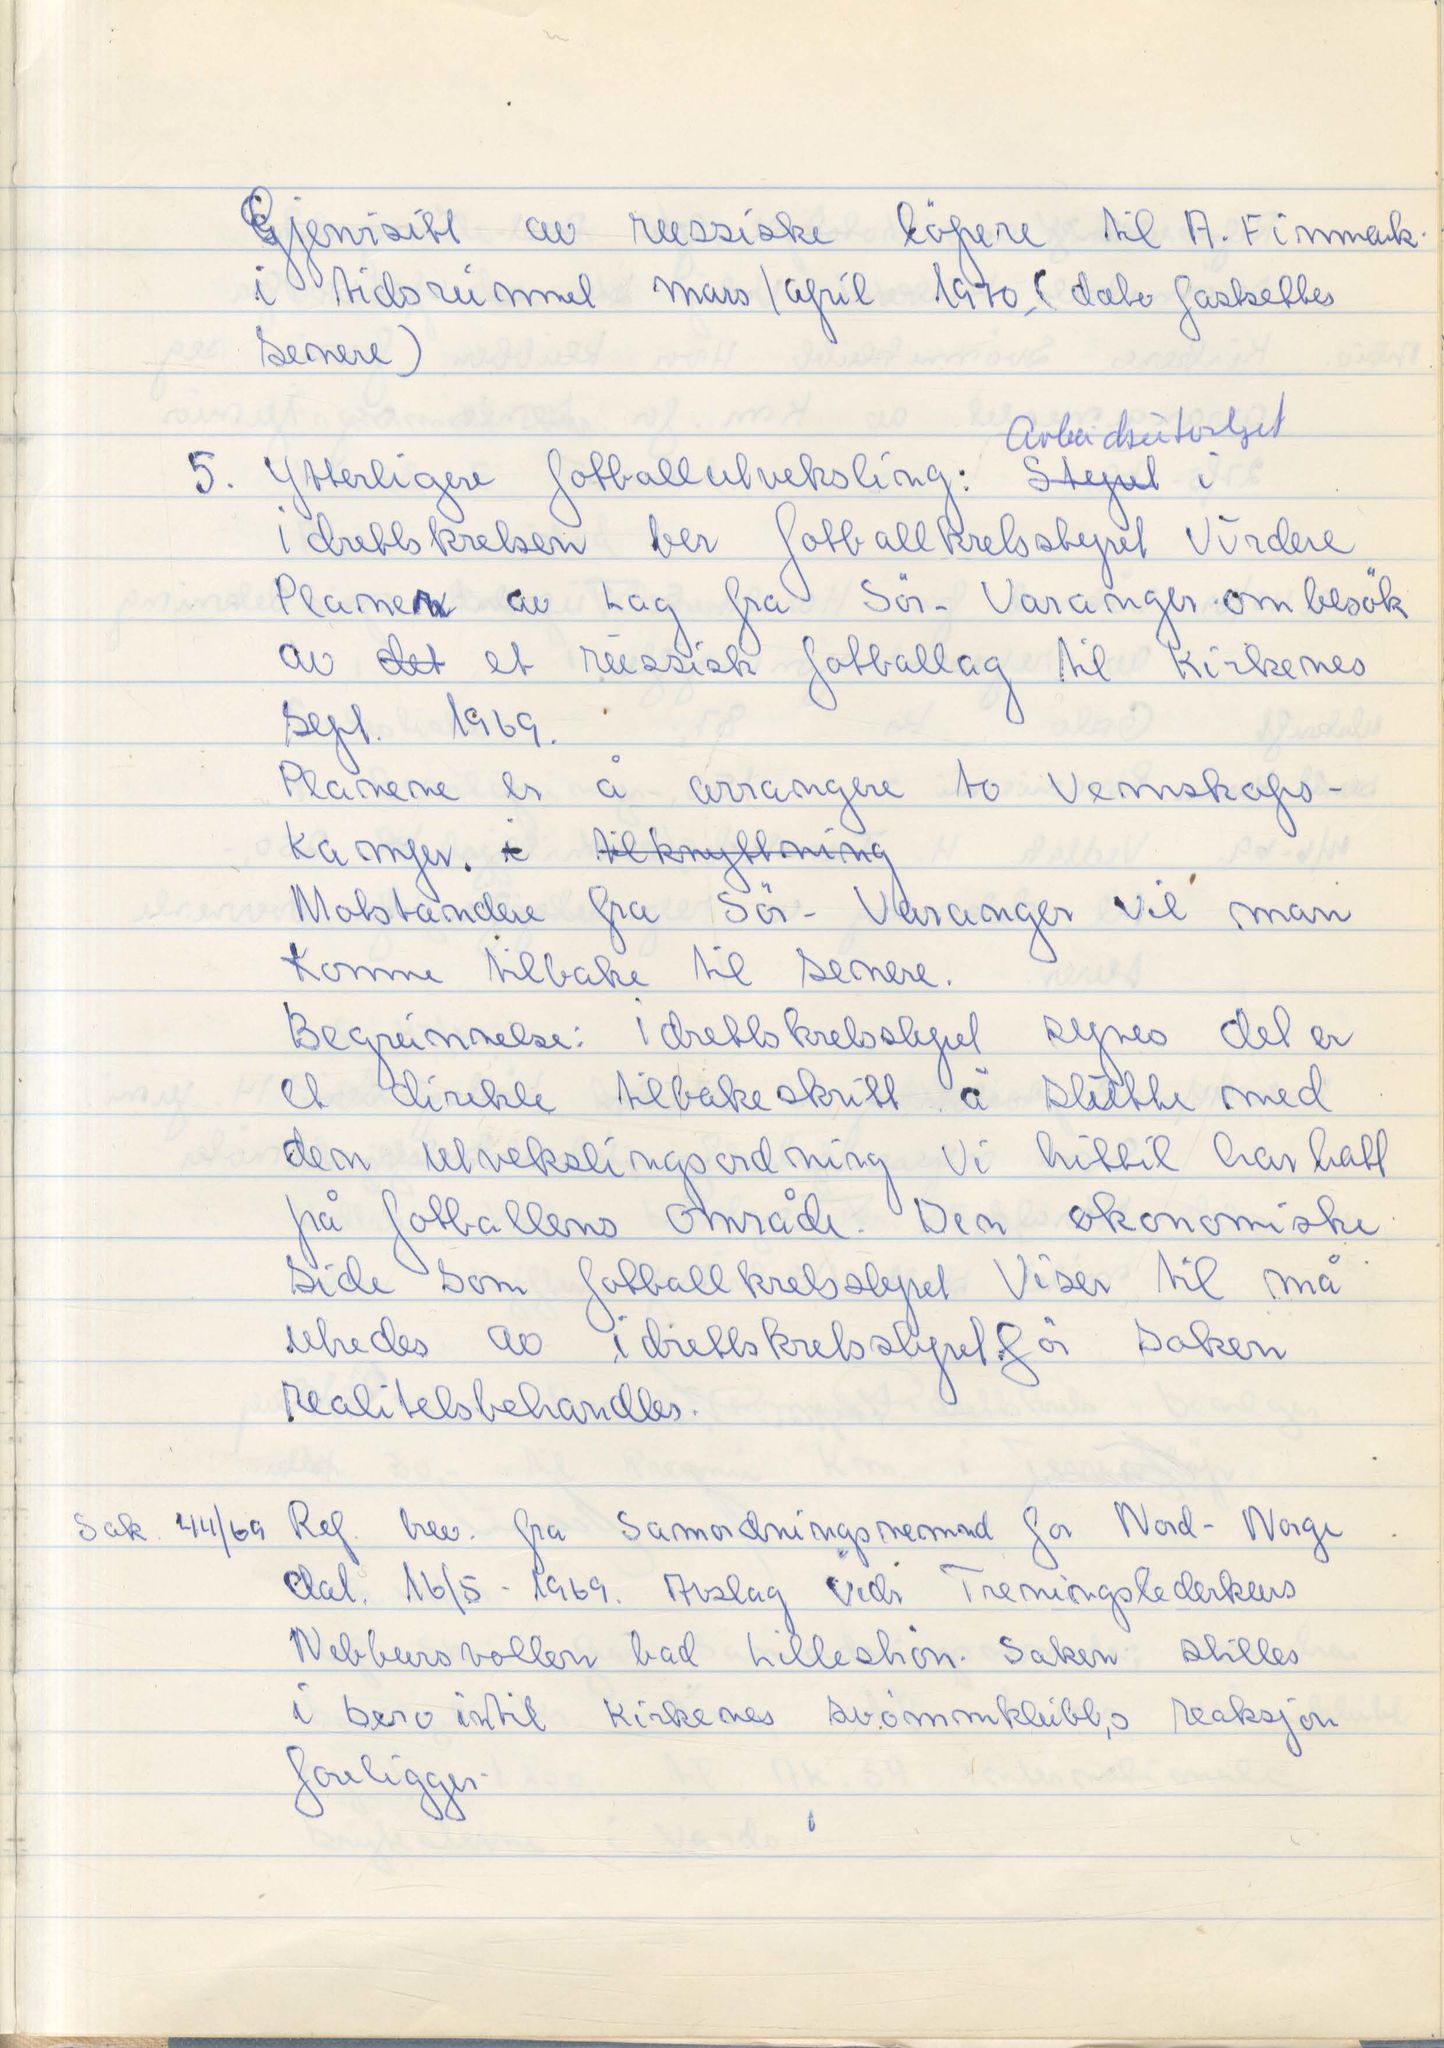 Gjenvisitt av russiske löpere til A. Finnmark
i tidsrummet mars/april 1970, (dato fastsettes
senere)
Arbeidsutvalget
5. Ytterligere fotballutveksling: Styret i
idrettskretsen ber fotballkretsstyret vurdere
Planen av Lag fra Sör-Varanger om besök
av det et russisk fotballag til Kirkenes
sept. 1969.
Planene er å arrangere to vennskaps-
kamper. i tilknyttning
Motstandere fra Sör-Varanger vil man
komme tilbake til senere.
Begrunnelse: idrettskretsstyret synes det er
et direkte tilbakeskritt å slutte med
den utvekslingsordning vi hittil har hatt
på fotballens område. Den økonomiske
side som fotballkretsstyret viser til må
utredes av idrettskretsstyret för saken
realitetsbehandles.
Sak. 44/69 Ref. brev. fra Samordningsnemnd for Nord-Norge
dat. 16/5-1969. Avslag vedr Treningslederkurs
Nebbursvollen bad Lilleström. Saken stilles
i bero intil Kirkenes svömmklubb,s reaksjon
foreligger.